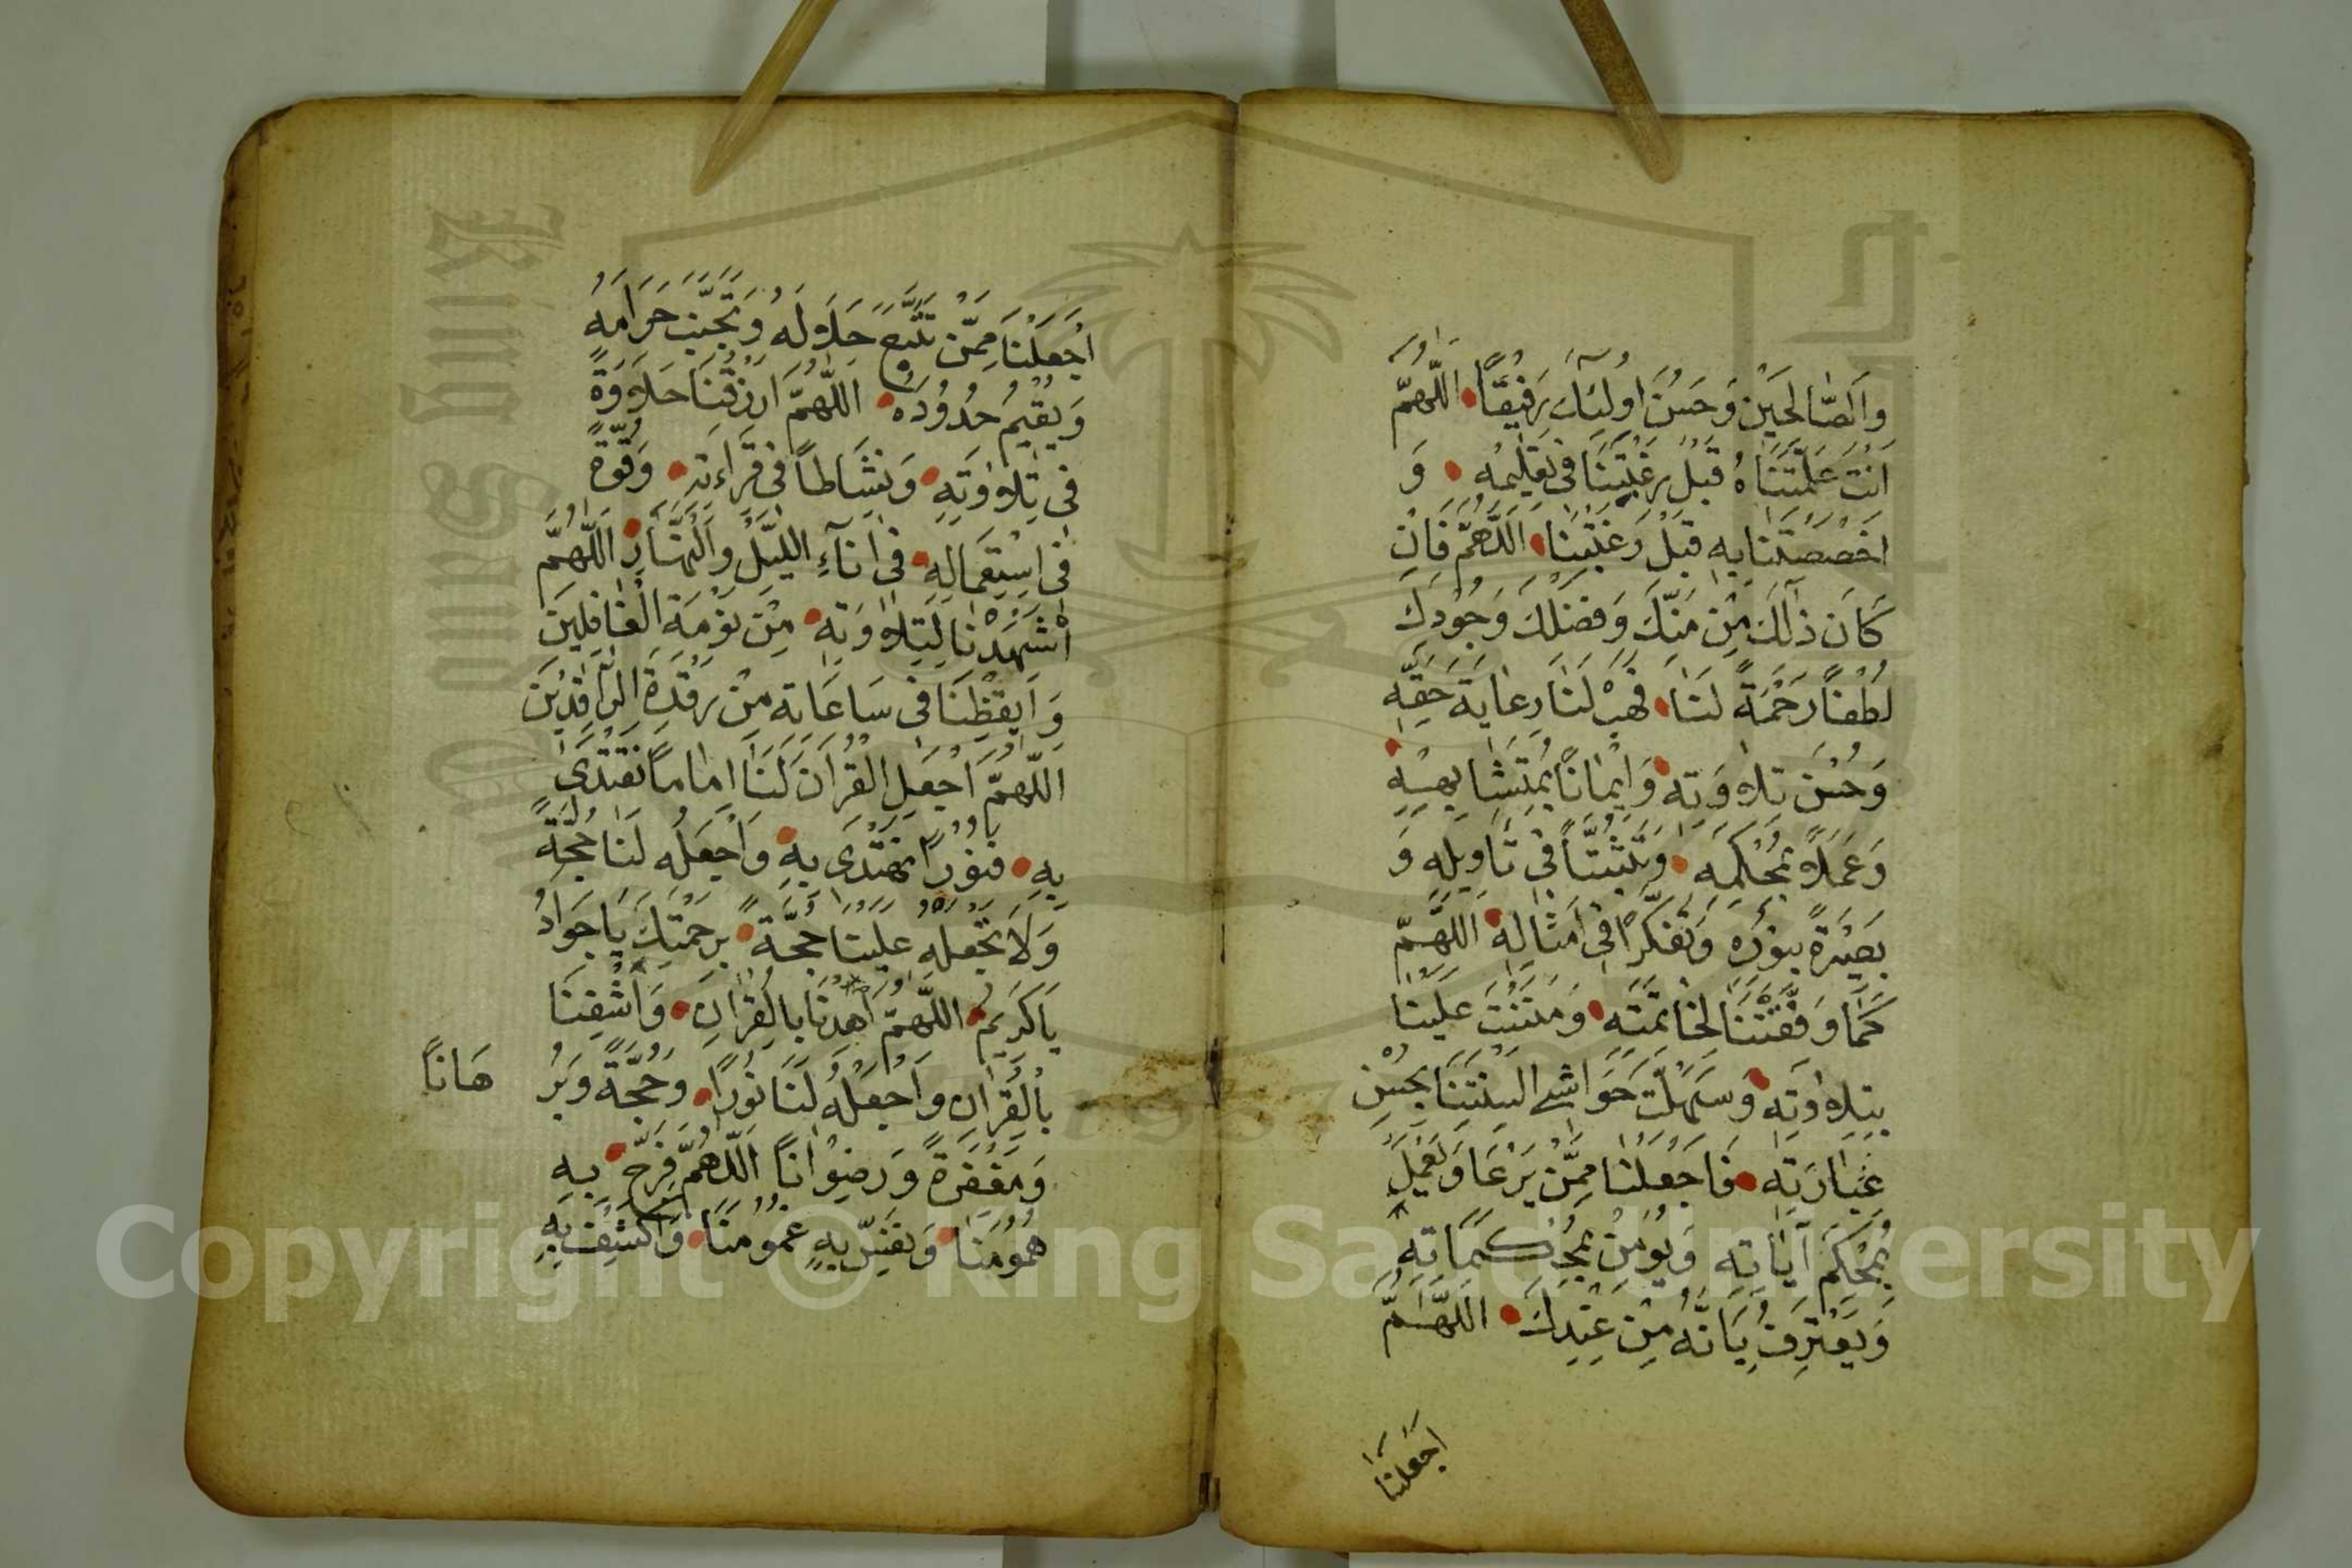 وَالصَّالِحِيْنَ وَحَسُنَ اُولٰئِكَ رَفِيْقًا اللّٰهُمَّ
اَنْتَ عَلَّمْتَنَاهُ قَبْلَ رَغْبَتِنَا فِي تَعْلِيْمِهِ وَ
اخْصَصْتَنَا بِهِ قَبْلَ رَغْبَتِنَا اَللّٰهُمَّ فَاِنْ
كَانَ ذٰلِكَ مِنْ مَنِّكَ وَفَضْلِكَ وَجُوْدِكَ
لُطْفًا رَحْمَةً لَنَا فَهَبْ لَنَا رِعَايَةَ حَقِّهِ
وَحُسْنَ تِلَاوَتِهِ وَاِيْمَانًا بِمُتَشَابِهِهِ
وَعَمَلًا بِمُحْكَمِهِ وَتَثَبُّتًا فِي تَأْوِيلِهِ وَ
بَصِيْرَةً بِنُوْرِهِ وَتَفَكُّرًا فِي اَمْثَالِهِ اَللّٰهُمَّ
كَمَا وَفَّقْتَنَا لِخَاتِمَتِهِ وَمَنَنْتَ عَلَيْنَا
بِتِلَاوَتِهِ وَسَهَّلْتَ حَوَاشِيَ اَلْسِنَتِنَا بِحُسْنِ
عِبَارَتِهِ فَاجْعَلْنَا مِمَّنْ يَرْعَا وَيَعْمَلُ
بِمُحْكَمِ آيَاتِهِ وَيُؤْمِنُ بِمُحْكَمَاتِهِ
وَيَعْتَرِفُ بِاَنَّهُ مِنْ عِنْدِكَ اَللّٰهُمَّ
اجْعَلْنَا
اجْعَلْنَا مِمَّنْ تَتَبَّعَ حَلَالَهُ وَتَجَنَّبَ حَرَامَهُ
وَيُقِيْمُ حُدُوْدَهُ اَللّٰهُمَّ ارْزُقْنَا حَلَاوَةً
فِي تِلَاوَتِهِ وَنَشَاطًا فِي قِرَاءَتِهِ وَقُوَّةً
فِي اِسْتِعْمَالِهِ فِي اٰنَآءِ اللَّيْلِ وَالنَّهَارِ اَللّٰهُمَّ
اَشْهِدْنَا لِتِلَاوَتِهِ مِنْ نَوْمَةِ الْغَافِلِيْنَ
وَاَيْقِظْنَا فِي سَاعَاتِهِ مِنْ رَقْدَةِ الرَّاقِدِيْنَ
اَللّٰهُمَّ اجْعَلِ الْقُرْاٰنَ لَنَا اِمَامًا نَقْتَدِى
بِهِ فَنُوْرًا نَهْتَدِى بِهِ وَاجْعَلْهُ لَنَا حُجَّةً
وَلَا تَجْعَلْهُ عَلَيْنَا حُجَّةً بِرَحْمَتِكَ يَا جَوَادُ
يَا كَرِيْمُ اَللّٰهُمَّ اهْدِنَا بِالْقُرْاٰنِ وَاشْفِنَا
بِالْقُرْاٰنِ وَاجْعَلْهُ لَنَا نُوْرًا وَحُجَّةً وَبُرْ
هَانًا
وَمَغْفِرَةً وَرِضْوَانًا اَللّٰهُمَّ فَرِّجْ بِهِ
هُمُوْمَنَا وَنَفِّسْ بِهِ غُمُوْمَنَا وَاكْشِفْ بِهِ
Copyright © King Saud University